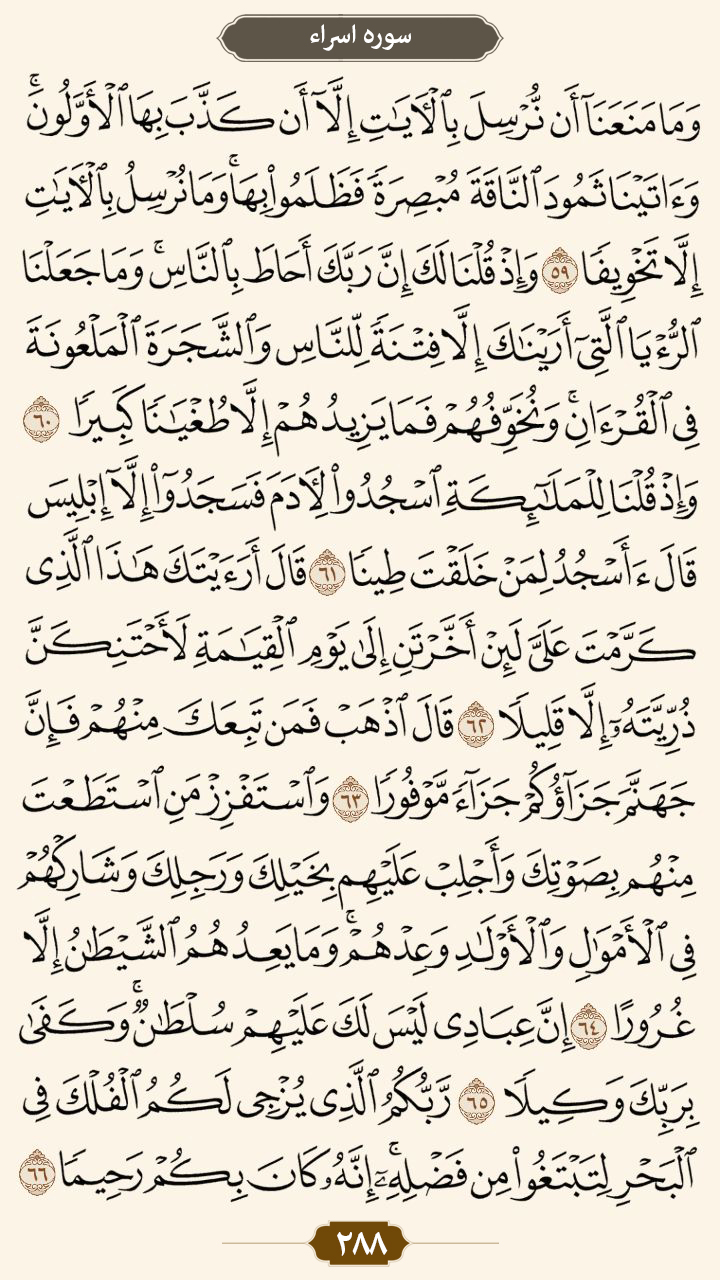 سوره اسراء
وَمَا مَنَعَنَآ أَن نُّرْسِلَ بِٱلْـَٔايَـٰتِ إِلَّآ أَن كَذَّبَ بِهَا ٱلْأَوَّلُونَ ۚ
وَءَاتَيْنَا ثَمُودَ ٱلنَّاقَةَ مُبْصِرَةً فَظَلَمُوا۟ بِهَا ۚ وَمَا نُرْسِلُ بِٱلْـَٔايَـٰتِ
إِلَّا تَخْوِيفًا ٥٩ وَإِذْ قُلْنَا لَكَ إِنَّ رَبَّكَ أَحَاطَ بِٱلنَّاسِ ۚ وَمَا جَعَلْنَا
ٱلرُّءْيَا ٱلَّتِىٓ أَرَيْنَـٰكَ إِلَّا فِتْنَةً لِّلنَّاسِ وَٱلشَّجَرَةَ ٱلْمَلْعُونَةَ
فِى ٱلْقُرْءَانِ ۚ وَنُخَوِّفُهُمْ فَمَا يَزِيدُهُمْ إِلَّا طُغْيَـٰنًا كَبِيرًا ٦٠
وَإِذْ قُلْنَا لِلْمَلَـٰٓئِكَةِ ٱسْجُدُوا۟ لِـَٔادَمَ فَسَجَدُوٓا۟ إِلَّآ إِبْلِيسَ
قَالَ ءَأَسْجُدُ لِمَنْ خَلَقْتَ طِينًا ٦١ قَالَ أَرَءَيْتَكَ هَـٰذَا ٱلَّذِى
كَرَّمْتَ عَلَىَّ لَئِنْ أَخَّرْتَنِ إِلَىٰ يَوْمِ ٱلْقِيَـٰمَةِ لَأَحْتَنِكَنَّ
ذُرِّيَّتَهُۥٓ إِلَّا قَلِيلًا ٦٢ قَالَ ٱذْهَبْ فَمَن تَبِعَكَ مِنْهُمْ فَإِنَّ
جَهَنَّمَ جَزَآؤُكُمْ جَزَآءً مَّوْفُورًا ٦٣ وَٱسْتَفْزِزْ مَنِ ٱسْتَطَعْتَ
مِنْهُم بِصَوْتِكَ وَأَجْلِبْ عَلَيْهِم بِخَيْلِكَ وَرَجِلِكَ وَشَارِكْهُمْ
فِى ٱلْأَمْوَٰلِ وَٱلْأَوْلَـٰدِ وَعِدْهُمْ ۚ وَمَا يَعِدُهُمُ ٱلشَّيْطَـٰنُ إِلَّا
غُرُورًا ٦٤ إِنَّ عِبَادِى لَيْسَ لَكَ عَلَيْهِمْ سُلْطَـٰنٌ ۚ وَكَفَىٰ
بِرَبِّكَ وَكِيلًا ٦٥ رَّبُّكُمُ ٱلَّذِى يُزْجِى لَكُمُ ٱلْفُلْكَ فِى
ٱلْبَحْرِ لِتَبْتَغُوا۟ مِن فَضْلِهِۦٓ ۚ إِنَّهُۥ كَانَ بِكُمْ رَحِيمًا ٦٦
٢٨٨